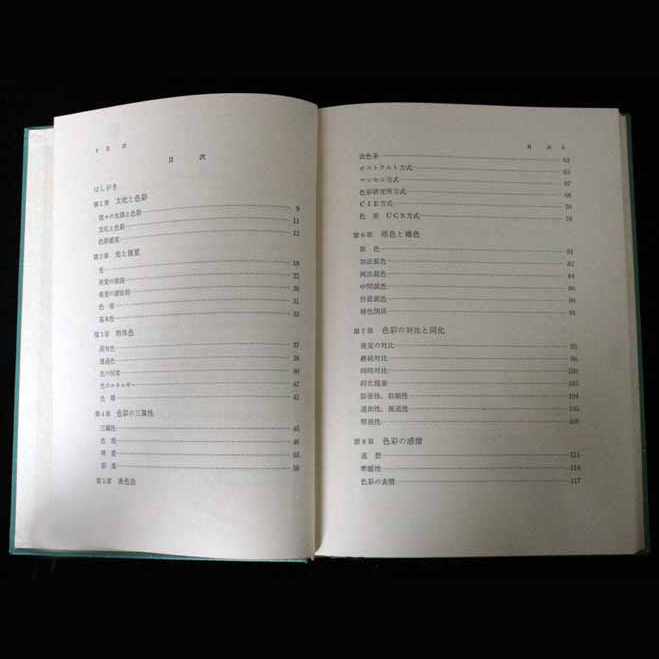 目次
はしがき
第1章 文化と色彩
我々の生活と色彩 9
文化と色彩 11
色彩感覚 13
第2章 光と視覚
光 19
視覚の
視覚の
色 30
基本色 33
第3章 物体色
固有色 37
透過色 39
光の
光のエネルギー 42
色
第4章 色彩の三属性
三属性 45
色相
明度
彩度
第5章 表色法
目次
表色系 63
オストワルト方式 65
マンセル方式 67
色彩研究所方式 68
CIE方式
UCS方式
第6章 原色と補色
原色 81
加法混色 82
減法混色 84
中間混色 85
併置混色 89
補色関係 91
第7章 色彩の対比と同化
視覚の対比 95
継続対比 96
同時対比 100
同化現象 103
膨張性、収縮性 104
進出性、後退性 105
明視性 108
第8章 色彩の感情
連想 111
寒暖性 114
色彩の表情 117